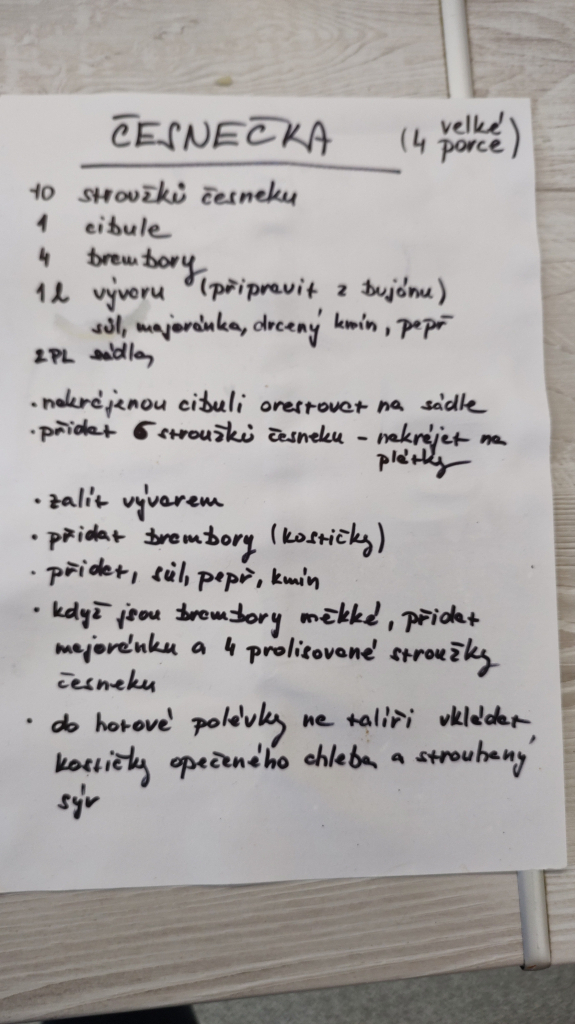 ČESNEČKA (4 velké porce)
10 stroužků česneku
1 cibule
4 brambory
1l vývaru (připravit z bujónu)
sůl, majoránka, drcený kmín, pepř
2PL sádla
• nakrájenou cibuli orestovat na sádle
• přidat 6 stroužků česneku – nakrájet na
plátky
• zalít vývarem
• přidat brambory (kostičky)
• přidat, sůl, pepř, kmín
• když jsou brambory měkké, přidat
majoránku a 4 prolisované stroužky
česneku
• do hotové polévky na talíři vkládat
kostičky opečeného chleba a strouhaný
sýr